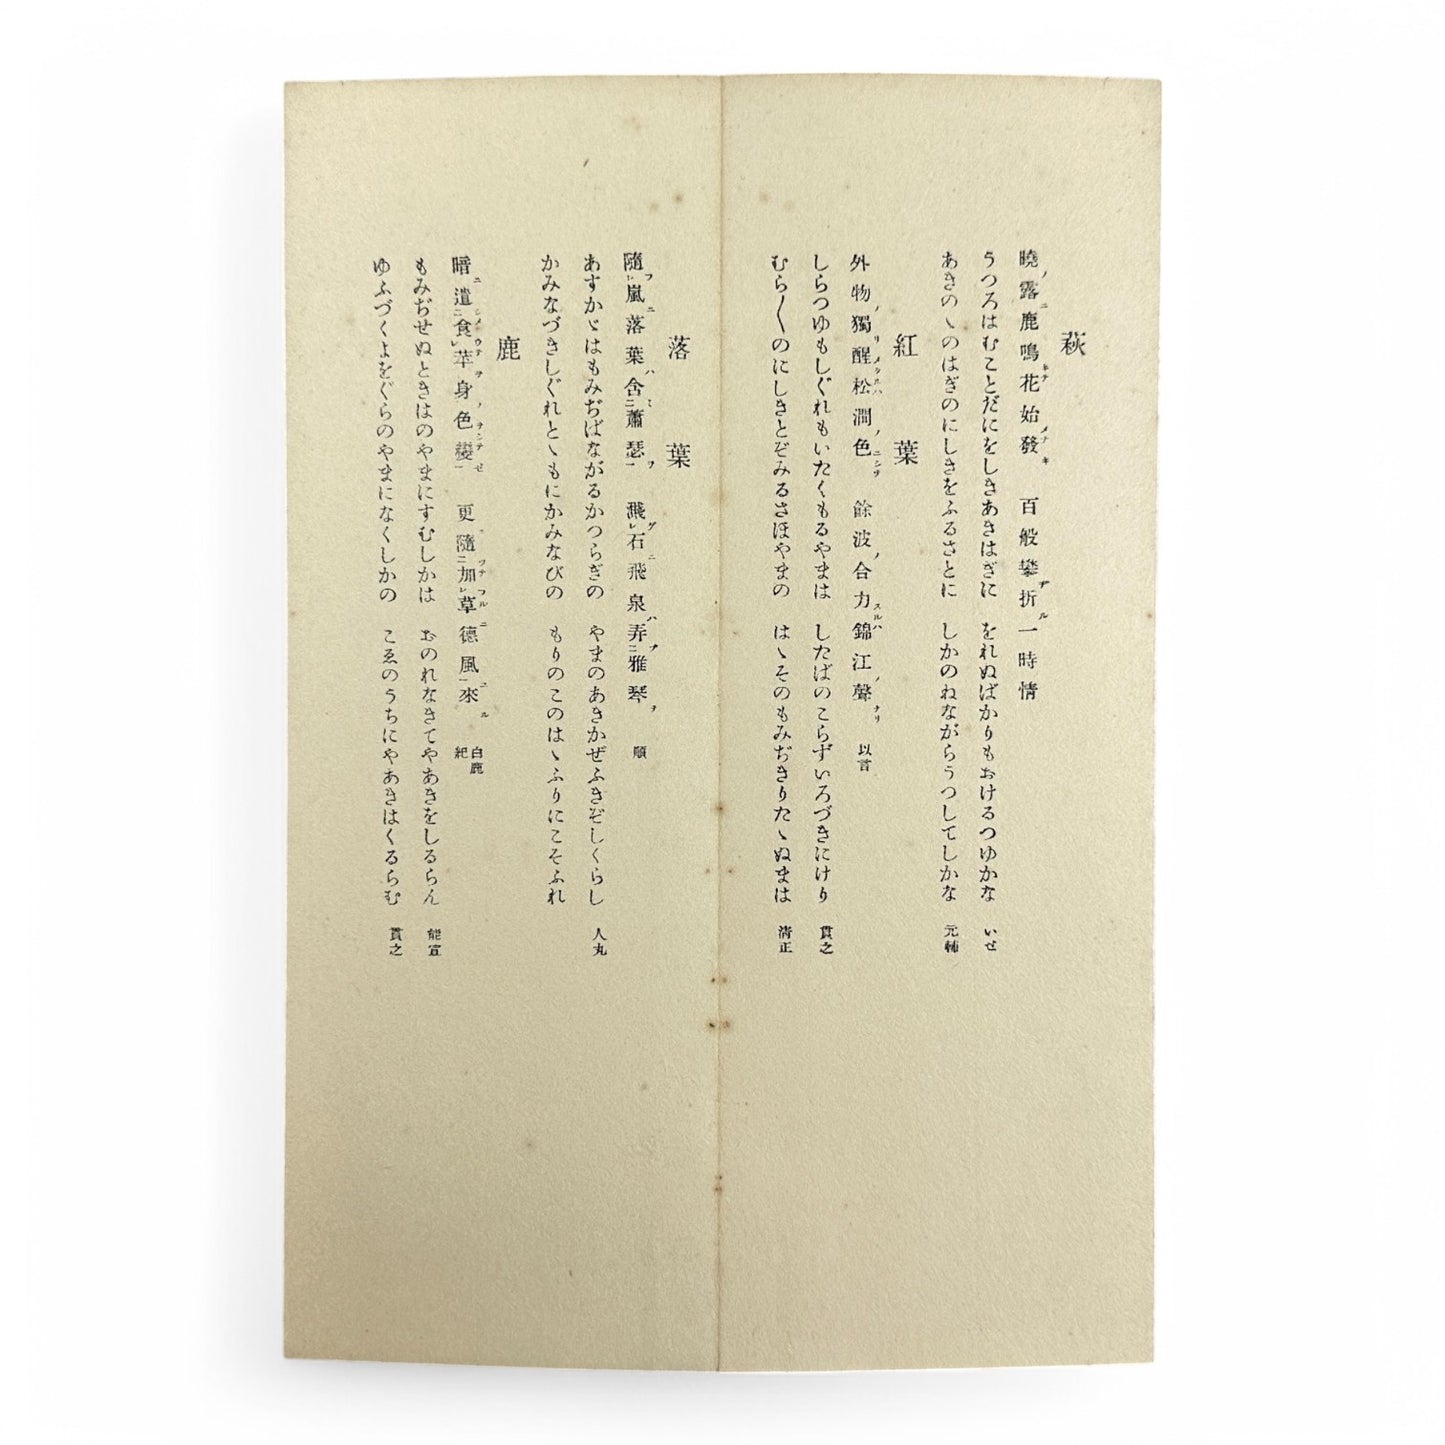 萩
曉露鹿鳴花始發　百般攀折一時情
うつろはむことだにをしきあきはぎに　をれぬばかりもおけるつゆかな　いせ
あきのゝのはぎのにしきをふるさとに　しかのねながらうつしてしかな　元輔
紅葉
外物獨醒松澗色　餘波合力錦江聲　以言
しらつゆもしぐれもいたくもるやまは　したばのこらずいろづきにけり　貫之
むら〱のにしきとぞみるさほやまの　はゝそのもみぢきりたゝぬまは　清正
落葉
隨嵐落葉含蕭瑟　濺石飛泉弄雅琴　順
あすかゞはもみぢばながるかつらぎの　やまのあきかぜふきぞしくらし　人丸
かみなづきしぐれとゝもにかみなびの　もりのこのはゝふりにこそふれ
鹿
暗遣食苹身色變　更隨加草德風來　白鹿　紀
もみぢせぬときはのやまにすむしかは　おのれなきてやあきをしるらん　能宣
ゆふづくよをぐらのやまになくしかの　こゑのうちにやあきはくるらむ　貫之